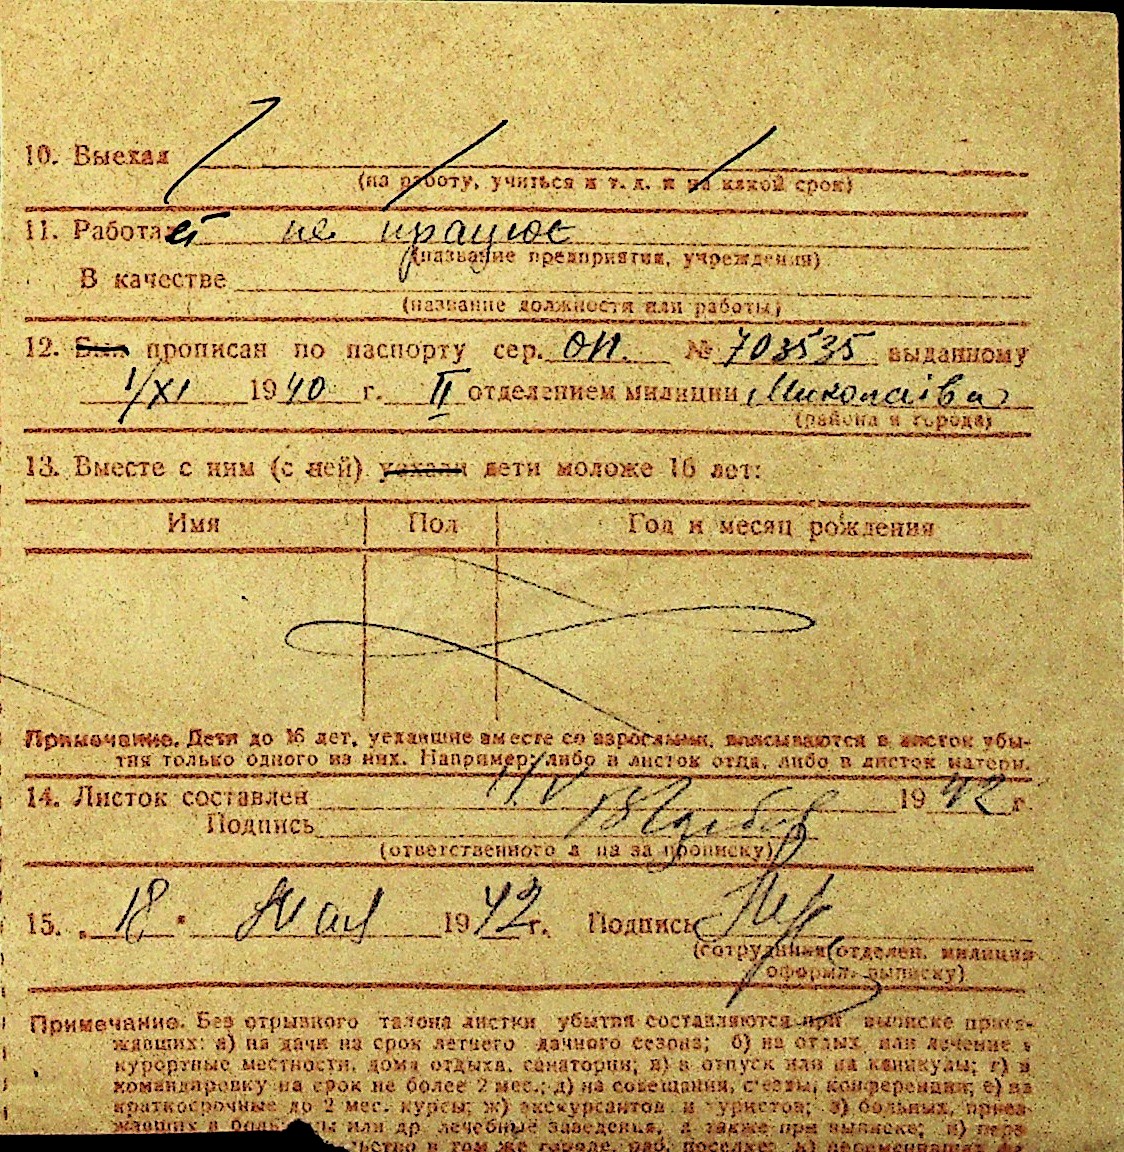 10. Выехал
(на работу, учиться и т. д. и на какой срок)
11. Работает не працює
(название предприятия, учреждения)
В качестве
(название должности или работы)
12. Был прописан по паспорту сер. ОП. № 703535 выданному
1/XI 1940 г. II отделением милиции Миколаїва
(района и города)
13. Вместе с ним (с ней) уехали дети моложе 16 лет:
Имя Пол Год и месяц рождения
Примечание. Дети до 16 лет, уехавшие вместе со взрослыми, вписываются в листок убы-
тия только одного из них. Например: либо в листок отца, либо в листок матери.
14. Листок составлен 1942 г.
Подпись
(ответственного л-ца за прописку)
15. „18" мая 1942 г. Подпись
(сотрудника отделен. милиции
оформл. выписку)
Примечание. Без отрывного талона листки убытия составляются при выписке приез-
жавших: а) на дачи на срок летнего дачного сезона; б) на отдых или лечение в
курортные местности, дома отдыха, санатории; в) в отпуск или на каникулы; г) в
командировку на срок не более 2 мес.; д) на совещания, съезды, конференции; е) на
краткосрочные до 2 мес. курсы; ж) экскурсантов и туристов; з) больных, приез-
жавших в больницы или др лечебные заведения, а также при выписке; и) пере-
льство в том же городе, раб. поселке; к)